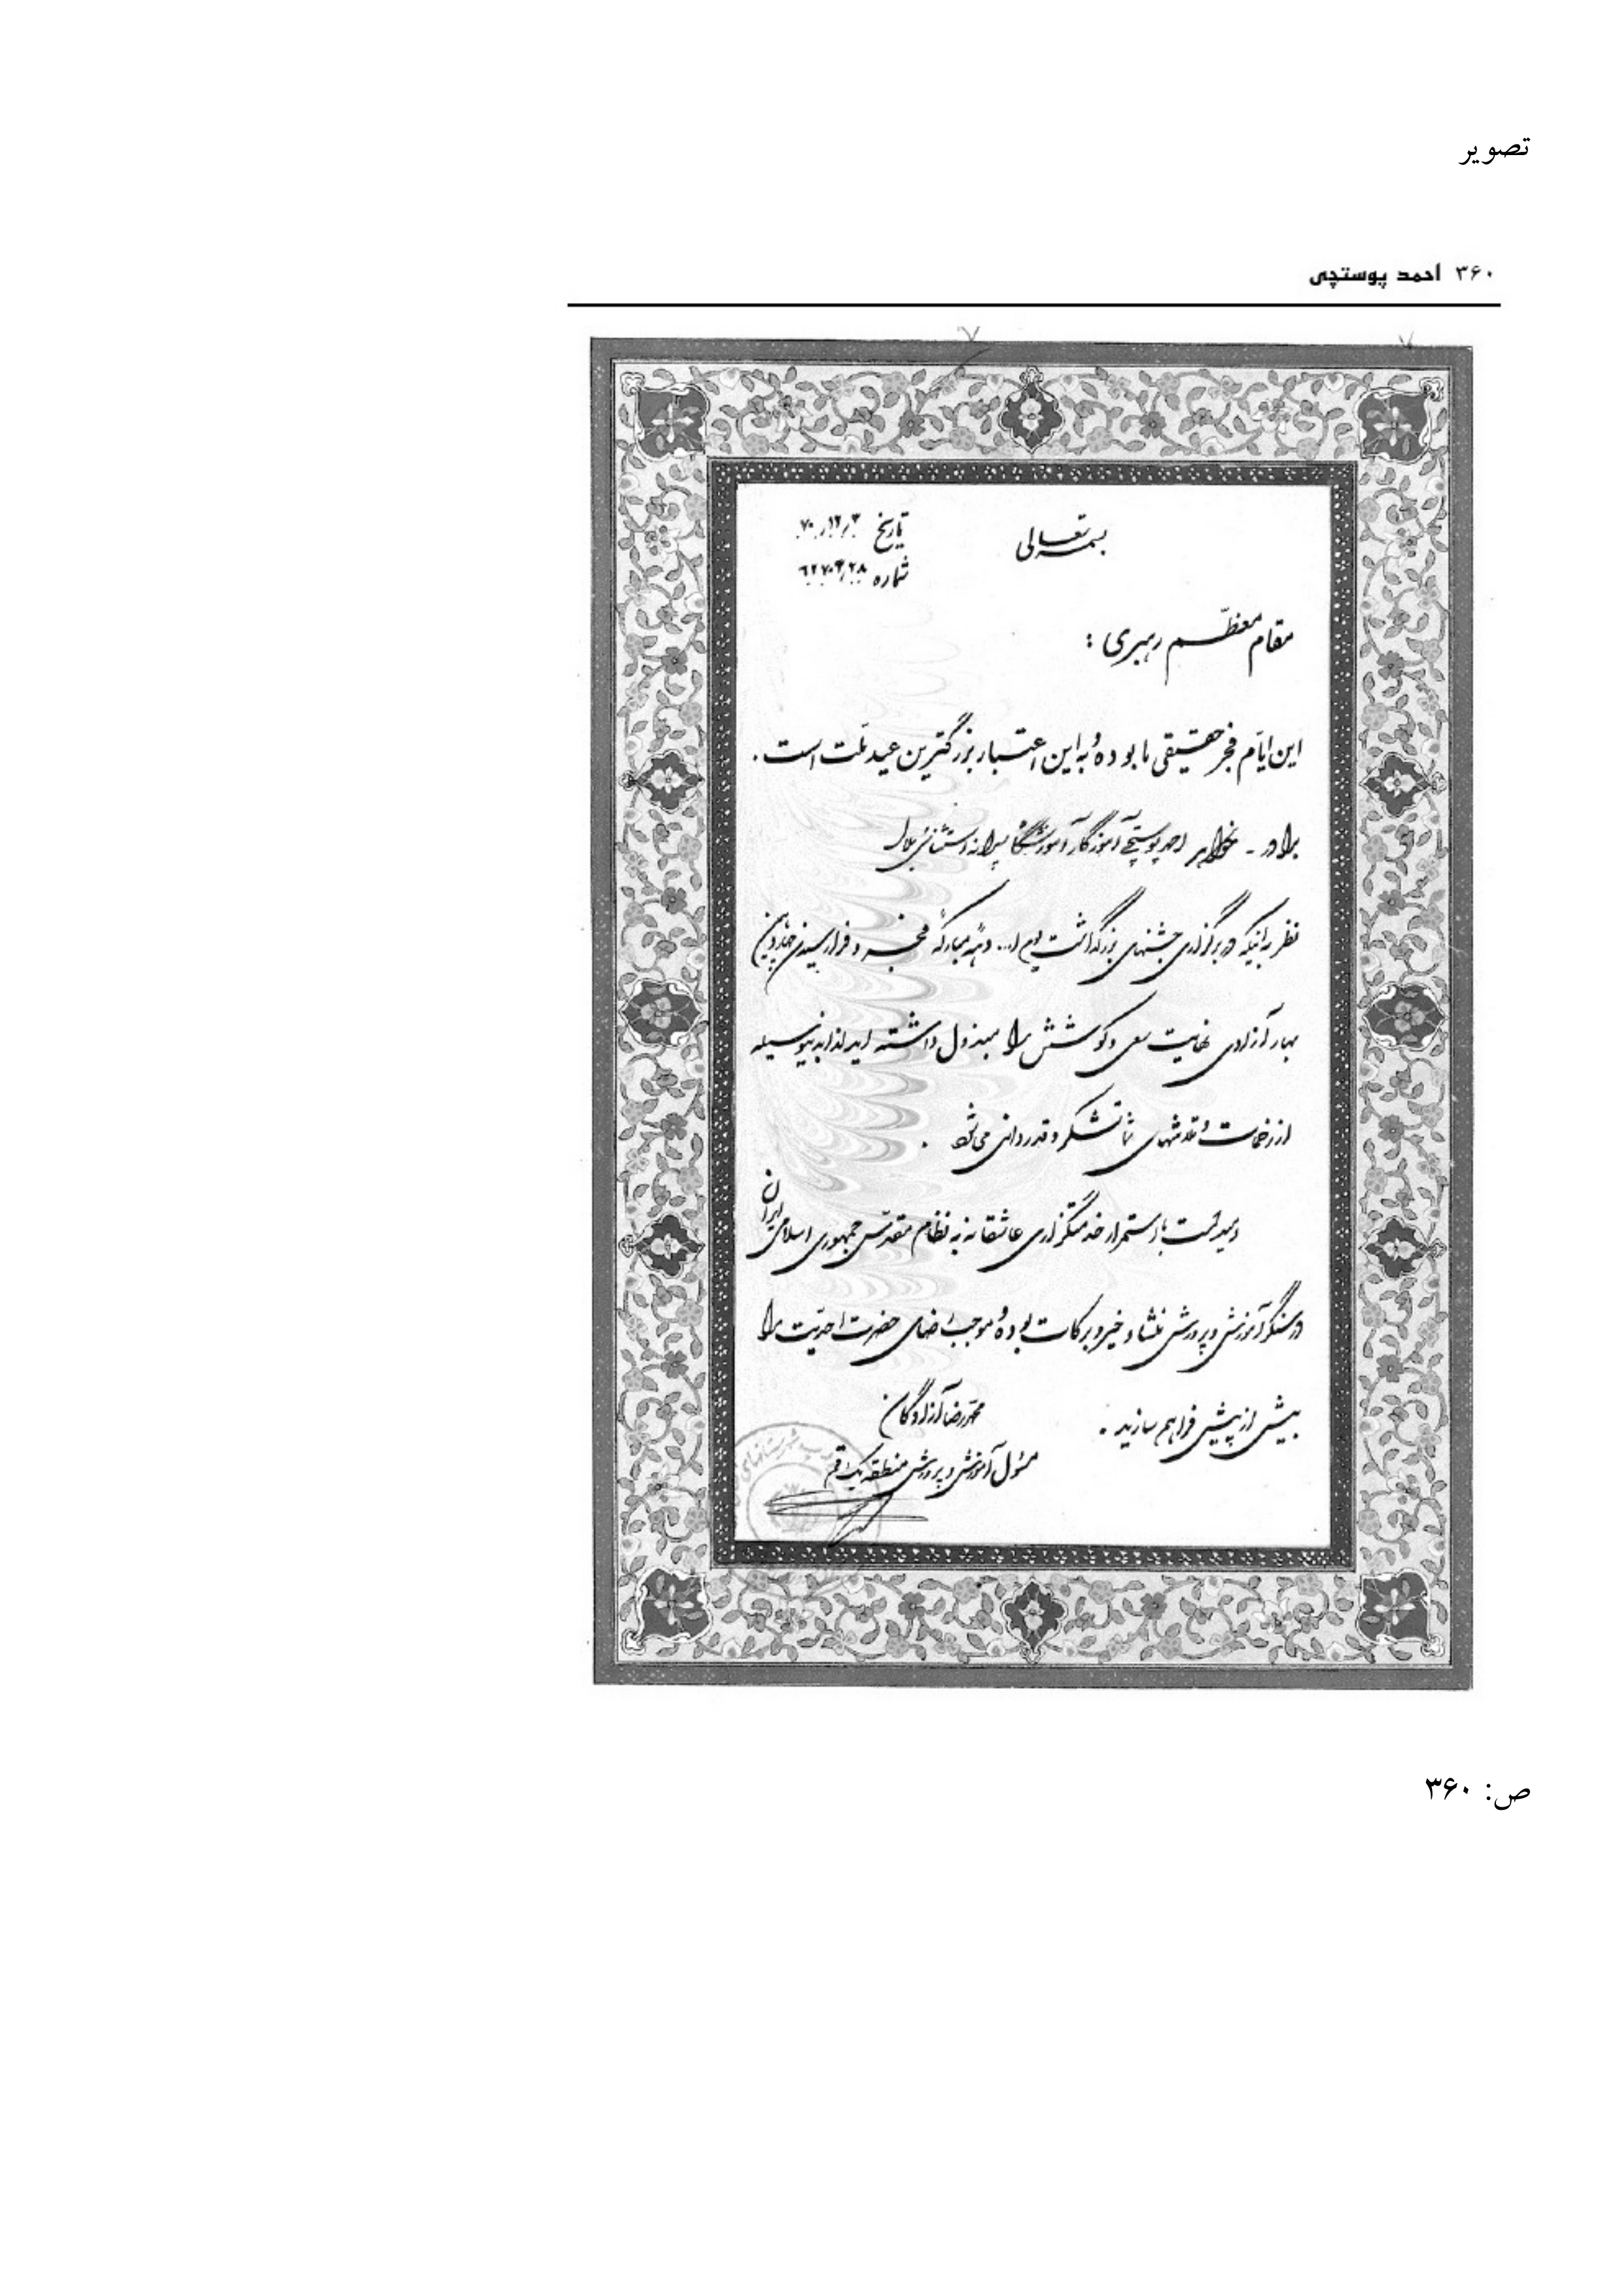 تصویر
۳۶۰ احمد پوستچی
بسمه تعالی
تاریخ ۷۰/۱۲/۳
شماره ۶۲۷۰۳/۲۸
مقام معظّم رهبری :
این ایّام فجر حقیقی ما بوده و به این اعتبار بزرگترین عید ملّت است .
برادر - خواهر احمد پوستچی آموزگار آموزشگاه پسرانه استثنائی بلال
نظر به اینکه در برگزاری جشنهای بزرگداشت یوم ا... دهه مبارکه فجر و فرارسیدن چهاردهمین
بهار آزادی نهایت سعی و کوشش را مبذول داشته اید لذا بدینوسیله
از زحمات و تلاشهای شما تشکر و قدردانی می شود .
امید است با استمرار خدمتگزاری عاشقانه به نظام مقدّس جمهوری اسلامی ایران
در سنگر آموزش و پرورش منشاء خیر و برکات بوده و موجب رضای حضرت احدیّت را
بیش از پیش فراهم سازید .
محمّدرضا آزادگان
مسئول آموزش و پرورش منطقه یک قم
ص: ۳۶۰